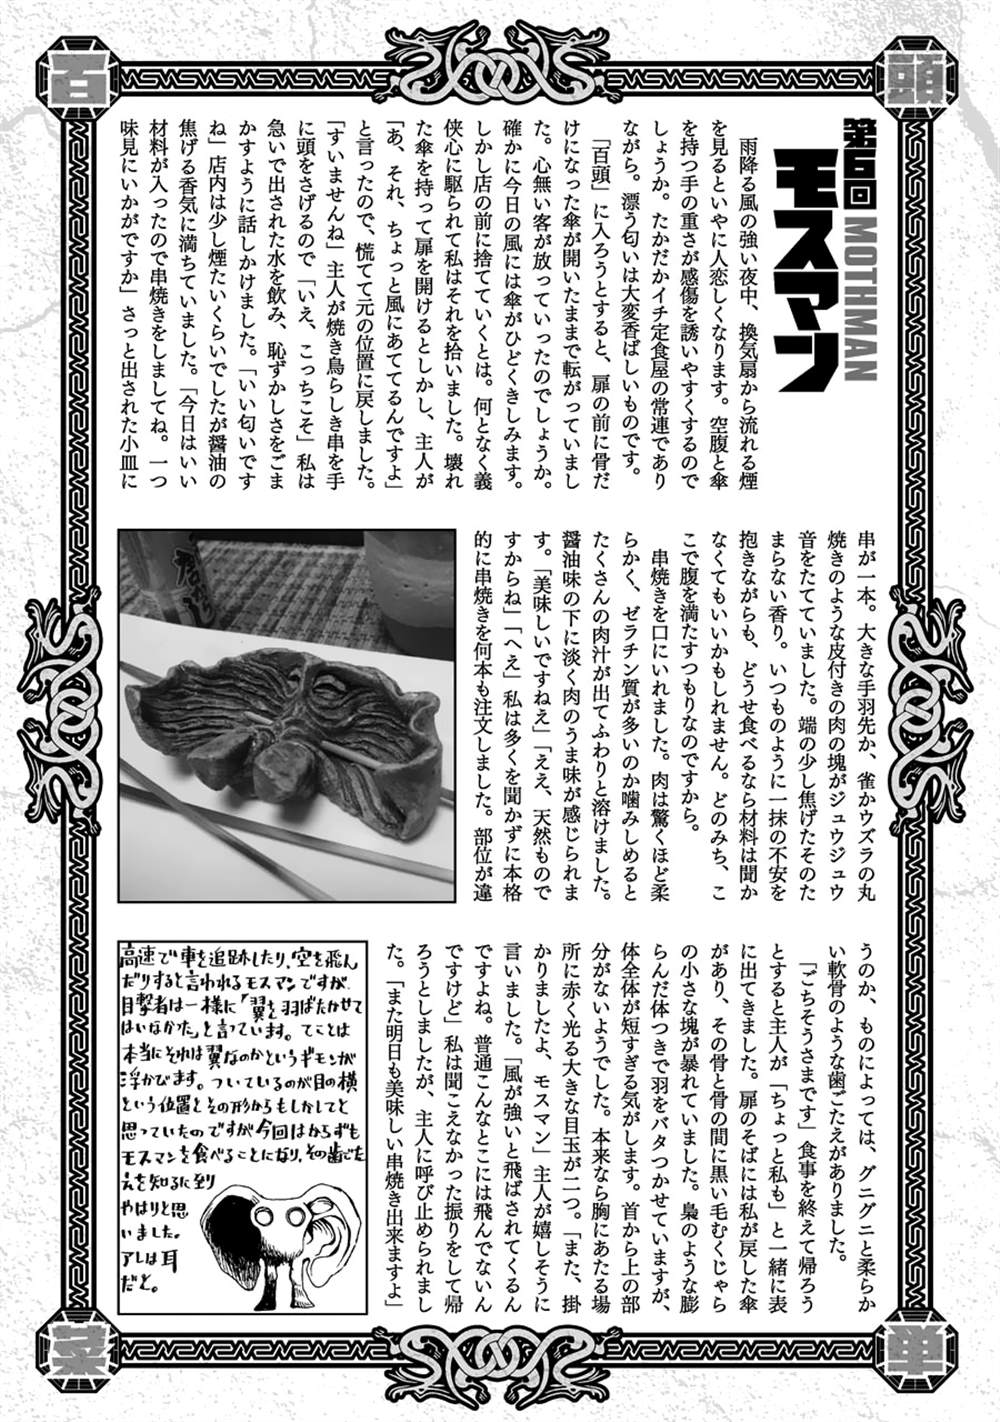 百
頭
第6回
モスマン
MOTHMAN
雨降る風の強い夜中、換気扇から流れる煙
を見るといやに人恋しくなります。空腹と傘
を持つ手の重さが感傷を誘いやすくするので
しょうか。たかだかイチ定食屋の常連であり
ながら。漂う匂いは大変香ばしいものです。
「百頭」に入ろうとすると、扉の前に骨だ
けになった傘が開いたままで転がっていまし
た。心無い客が放っていったのでしょうか。
確かに今日の風には傘がひどくきしみます。
しかし店の前に捨てていくとは。何となく義
侠心に駆られて私はそれを拾いました。壊れ
た傘を持って扉を開けるとしかし、主人が
「あ、それ、ちょっと風にあててるんですよ」
と言ったので、慌てて元の位置に戻しました。
「すいませんね」主人が焼き鳥らしき串を手
に頭をさげるので「いえ、こっちこそ」私は
急いで出された水を飲み、恥ずかしさをごま
かすように話しかけました。「いい匂いです
ね」店内は少し煙たいくらいでしたが醤油の
焦げる香気に満ちていました。「今日はいい
材料が入ったので串焼きをしましてね。一つ
味見にいかがですか」さっと出された小皿に
串が一本。大きな手羽先か、雀かウズラの丸
焼きのような皮付きの肉の塊がジュウジュウ
音をたてていました。端の少し焦げたそのた
まらない香り。いつものように一抹の不安を
抱きながらも、どうせ食べるなら材料は聞か
なくてもいいかもしれません。どのみち、こ
こで腹を満たすつもりなのですから。
串焼きを口にいれました。肉は驚くほど柔
らかく、ゼラチン質が多いのか噛みしめると
たくさんの肉汁が出てふわりと溶けました。
醤油味の下に淡く肉のうま味が感じられま
す。「美味しいですねえ」「ええ、天然もので
すからね」「へえ」私は多くを聞かずに本格
的に串焼きを何本も注文しました。部位が違
うのか、ものによっては、グニグニと柔らか
い軟骨のような歯ごたえがありました。
「ごちそうさまです」食事を終えて帰ろう
とすると主人が「ちょっと私も」と一緒に表
に出てきました。扉のそばには私が戻した傘
があり、その骨と骨の間に黒い毛むくじゃら
の小さな塊が暴れていました。梟のような膨
らんだ体つきで羽をバタつかせていますが、
体全体が短すぎる気がします。首から上の部
分がないようでした。本来なら胸にあたる場
所に赤く光る大きな目玉が二つ。「また、掛
かりましたよ、モスマン」主人が嬉しそうに
言いました。「風が強いと飛ばされてくるん
ですよね。普通こんなとこには飛んでないん
ですけど」私は聞こえなかった振りをして帰
ろうとしましたが、主人に呼び止められまし
た。「また明日も美味しい串焼き出来ますよ」
高速で車を追跡したり、空を飛ん
だりすると言われるモスマンですが、
目撃者は一様に「翼を羽ばたかせて
はいなかった」と言っています。てことは
本当にそれは翼なのかというギモンが
浮かびます。ついているのが目の横
という位置とその形からもしかしてと
思っていたのですが今回はからずも
モスマンを食べることになり、その歯ごた
えを知るに到り
やはりと思
いました。
アレは耳
だと。
菜
単